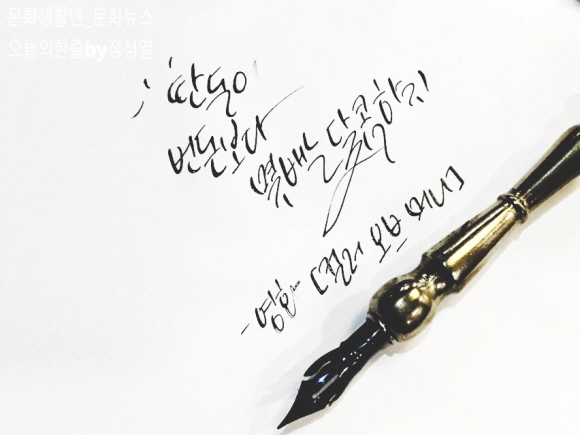 문화생활엔_문화뉴스
오늘의한줄by정성열
"딴 돈이
번 돈보다
몇 배는 달콤하지!
- 영화 [컬러 오브 머니]